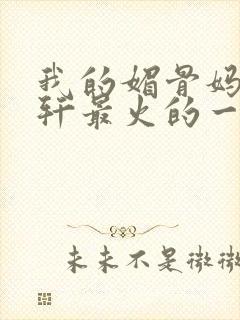 我的媚骨妈
轩最火的一
未来不是微微